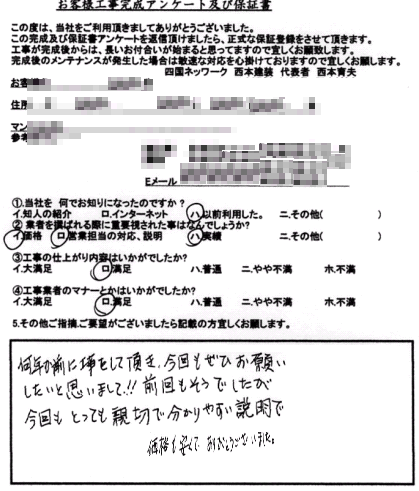 お客様工事完成アンケート及び保証書
この度は、当社をご利用頂きましてありがとうございました。
この完成及び保証書アンケートを返信頂けましたら、正式な保証登録をさせて頂きます。
工事が完成後からは、長いお付合いが始まると思ってますので宜しくお願致します。
完成後のメンテナンスが発生した場合は敏速な対応を心掛けておりますので宜しくお願します。
四国ネッワーク 西本建装 代表者 西本育夫
お客
住所
マン
参考
Eメール
①当社を 何でお知りになったのですか?
イ.知人の紹介 ロ.インターネット ハ.以前利用した。 ニ.その他( )
② 業者を選ばれる際に重要視された事はなんでしょうか?
イ.価格 ロ.営業担当の対応、説明 ハ.実績 ニ.その他( )
③工事の仕上がり内容はいかがでしたか?
イ.大満足 ロ.満足 ハ.普通 ニ.やや不満 ホ.不満
④工事業者のマナーとかはいかがでしたか?
イ.大満足 ロ.満足 ハ.普通 ニ.やや不満 ホ.不満
5.その他ご指摘、ご要望がございましたら記載の方宜しくお願します。
何年か前に して頂き、今回もぜひお願い
したいと思いまして!! 前回もそうでしたが
今回も とっても 親切で分かりやすい説明で
価格も安くて ありがとうございました。